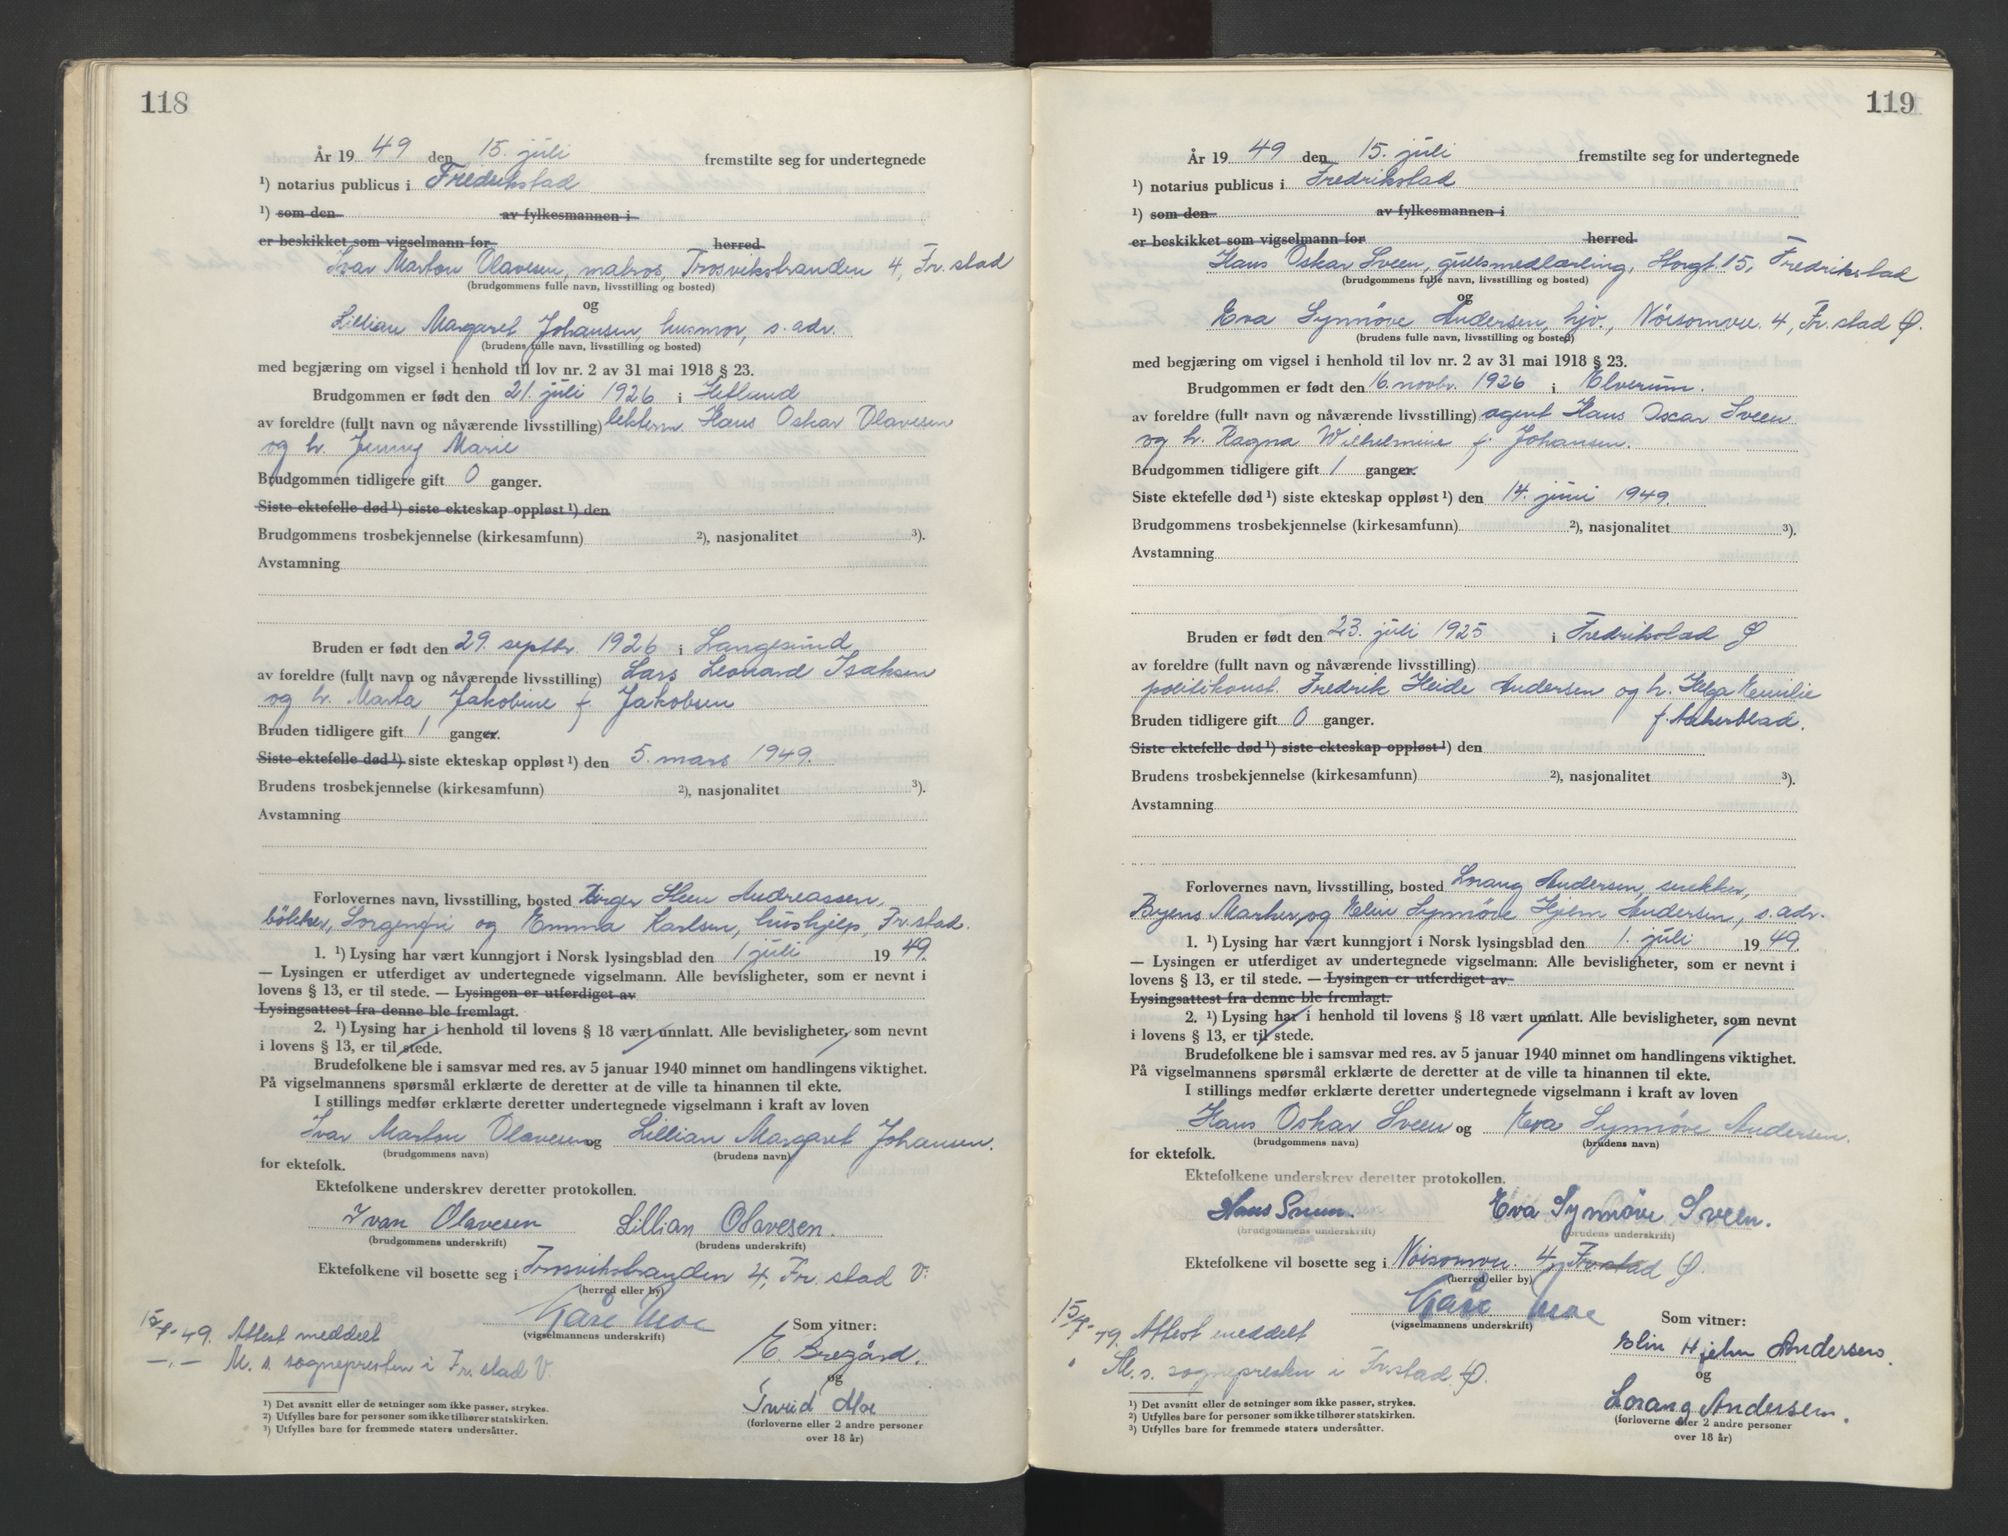 118
År 19 49 den 15. juli fremstilte seg for undertegnede
¹) notarius publicus i Fredrikstad
¹) som den av fylkesmannen i
er beskikket som vigselmann for herred
Ivar Marton Olavesen, matros, Trosvikstranden 4, Fr.stad
(brudgommens fulle navn, livsstilling og bosted)
og
Lillian Margaret Johansen, husmor, s. adr.
(brudens fulle navn, livsstilling og bosted)
med begjæring om vigsel i henhold til lov nr. 2 av 31 mai 1918 § 23.
Brudgommen er født den 21. juli 1926 i Hetland
av foreldre (fullt navn og nåværende livsstilling) Hans Oskar Olavesen
og h. Jenny Marie
Brudgommen tidligere gift 0 ganger.
Siste ektefelle død ¹) siste ekteskap oppløst ¹) den
Brudgommens trosbekjennelse (kirkesamfunn) ²), nasjonalitet ³).
Avstamning
Bruden er født den 29. septbr. 1926 i Langesund
av foreldre (fullt navn og nåværende livsstilling) Lars Leonard Isaksen
og h. Marta Jakobine f. Jakobsen
Bruden tidligere gift 1 ganger.
Siste ektefelle død ¹) siste ekteskap oppløst ¹) den 5. mars 1949.
Brudens trosbekjennelse (kirkesamfunn) ²), nasjonalitet ³).
Avstamning
Forlovernes navn, livsstilling, bosted Birger Steen Andreassen,
bøkker, Sorgenfri og Emma Karlsen, hushjelp, Fr.stad.
1. ¹) Lysing har vært kunngjort i Norsk lysingsblad den 1 juli 19 49.
— Lysingen er utferdiget av undertegnede vigselmann. Alle bevisligheter, som er nevnt i
lovens § 13, er til stede. — Lysingen er utferdiget av
Lysingsattest fra denne ble fremlagt.
2. ¹) Lysing har i henhold til lovens § 18 vært unnlatt. Alle bevisligheter, som nevnt
i lovens § 13, er til stede.
Brudefolkene ble i samsvar med res. av 5 januar 1940 minnet om handlingens viktighet.
På vigselmannens spørsmål erklærte de deretter at de ville ta hinannen til ekte.
I stillings medfør erklærte deretter undertegnede vigselmann i kraft av loven
Ivar Marton Olavesen og Lillian Margaret Johansen.
(brudgommens navn) (brudens navn)
for ektefolk.
Ektefolkene underskrev deretter protokollen.
Ivan Olavesen Lillian Olavesen.
(brudgommens underskrift) (brudens underskrift)
Ektefolkene vil bosette seg i Trosvikstranden 4, Fr.stad V.
(herred eller by)
Kåre Moe
(vigselmannens underskrift)
Som vitner:
15/7-49. Attest meddelt
E. Bregård.
—"— M. s. sognepresten i Fr.stad V.
og
Turid Moe
(forloverne eller 2 andre personer
over 18 år)
¹) Det avsnitt eller de setninger som ikke passer, strykes.
²) Utfylles bare for personer som ikke tilhører statskirken.
³) Utfylles bare for fremmede staters undersåtter.
119
År 19 49 den 15. juli fremstilte seg for undertegnede
¹) notarius publicus i Fredrikstad
¹) som den av fylkesmannen i
er beskikket som vigselmann for herred
Hans Oskar Sveen, gullsmedlærling, Storgt. 15, Fredrikstad
(brudgommens fulle navn, livsstilling og bosted)
og
Eva Synnøve Andersen, hjv., Nöisomvn. 4, Fr.stad Ø.
(brudens fulle navn, livsstilling og bosted)
med begjæring om vigsel i henhold til lov nr. 2 av 31 mai 1918 § 23.
Brudgommen er født den 16. novbr. 1926 i Elverum.
av foreldre (fullt navn og nåværende livsstilling) agent Hans Oscar Sveen
og h. Ragna Wilhelmine f. Johansen.
Brudgommen tidligere gift 1 ganger.
Siste ektefelle død ¹) siste ekteskap oppløst ¹) den 14. juni 1949.
Brudgommens trosbekjennelse (kirkesamfunn) ²), nasjonalitet ³).
Avstamning
Bruden er født den 23. juli 1925 i Fredrikstad Ø
av foreldre (fullt navn og nåværende livsstilling)
politikonst. Fredrik Heide Andersen og h. Helga Emilie
Bruden tidligere gift 0 ganger. f. Aakerblad.
Siste ektefelle død ¹) siste ekteskap oppløst ¹) den
Brudens trosbekjennelse (kirkesamfunn) ²), nasjonalitet ³).
Avstamning
Forlovernes navn, livsstilling, bosted Lorang Andersen, snekker,
Byens Marker, og Elin Synnøve Hjelm Andersen, s. adr.
1. ¹) Lysing har vært kunngjort i Norsk lysingsblad den 1. juli 19 49.
— Lysingen er utferdiget av undertegnede vigselmann. Alle bevisligheter, som er nevnt i
lovens § 13, er til stede. — Lysingen er utferdiget av
Lysingsattest fra denne ble fremlagt.
2. ¹) Lysing har i henhold til lovens § 18 vært unnlatt. Alle bevisligheter, som nevnt
i lovens § 13, er til stede.
Brudefolkene ble i samsvar med res. av 5 januar 1940 minnet om handlingens viktighet.
På vigselmannens spørsmål erklærte de deretter at de ville ta hinannen til ekte.
I stillings medfør erklærte deretter undertegnede vigselmann i kraft av loven
Hans Oskar Sveen og Eva Synnøve Andersen.
(brudgommens navn) (brudens navn)
for ektefolk.
Ektefolkene underskrev deretter protokollen.
Hans Sveen. Eva Synnøve Sveen.
(brudgommens underskrift) (brudens underskrift)
Ektefolkene vil bosette seg i Nöisomvn. 4, Fr.stad Ø.
(herred eller by)
Kåre Moe
(vigselmannens underskrift)
Som vitner:
15/7-49. Attest meddelt
Elin Hjelm Andersen.
" M. s. sognepresten i Fr.stad Ø.
og
Lorang Andersen.
(forloverne eller 2 andre personer
over 18 år)
¹) Det avsnitt eller de setninger som ikke passer, strykes.
²) Utfylles bare for personer som ikke tilhører statskirken.
³) Utfylles bare for fremmede staters undersåtter.